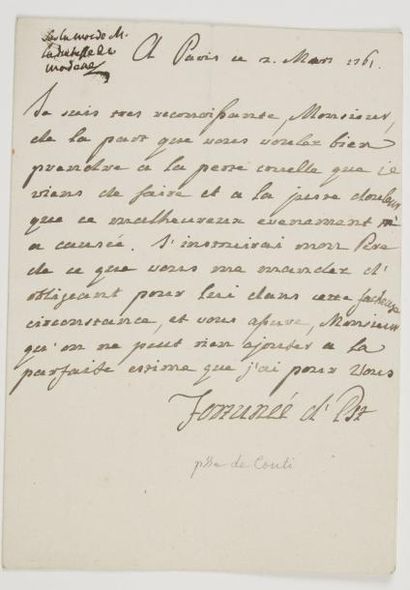 Sur la mort de M.
la duchesse de
modene
A Paris ce 2. Mars 1761.
Je suis tres reconoissante, Monsieur,
de la part que vous voulez bien
prendre a la perte cruelle que je
viens de faire et a la juste douleur
que ce malheureux evenement m'
a causée. J'instruirai mon Pere
de ce que vous me mandez d'
obligeant pour lui dans cette facheuse
circonstance, et vous assure, Monsieur
qu'on ne peut rien ajouter a la
parfaite estime que j'ai pour vous
Fortunée d'Est
psse de Conti